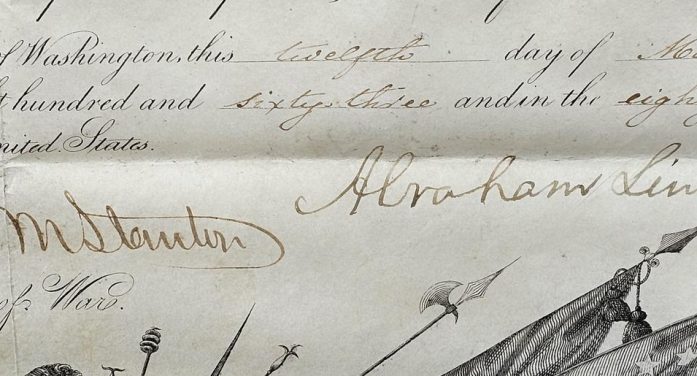 of Washington, this twelfth day of
hundred and sixty-three and in the
United States.
Abraham Lin
M Stanton
of War.